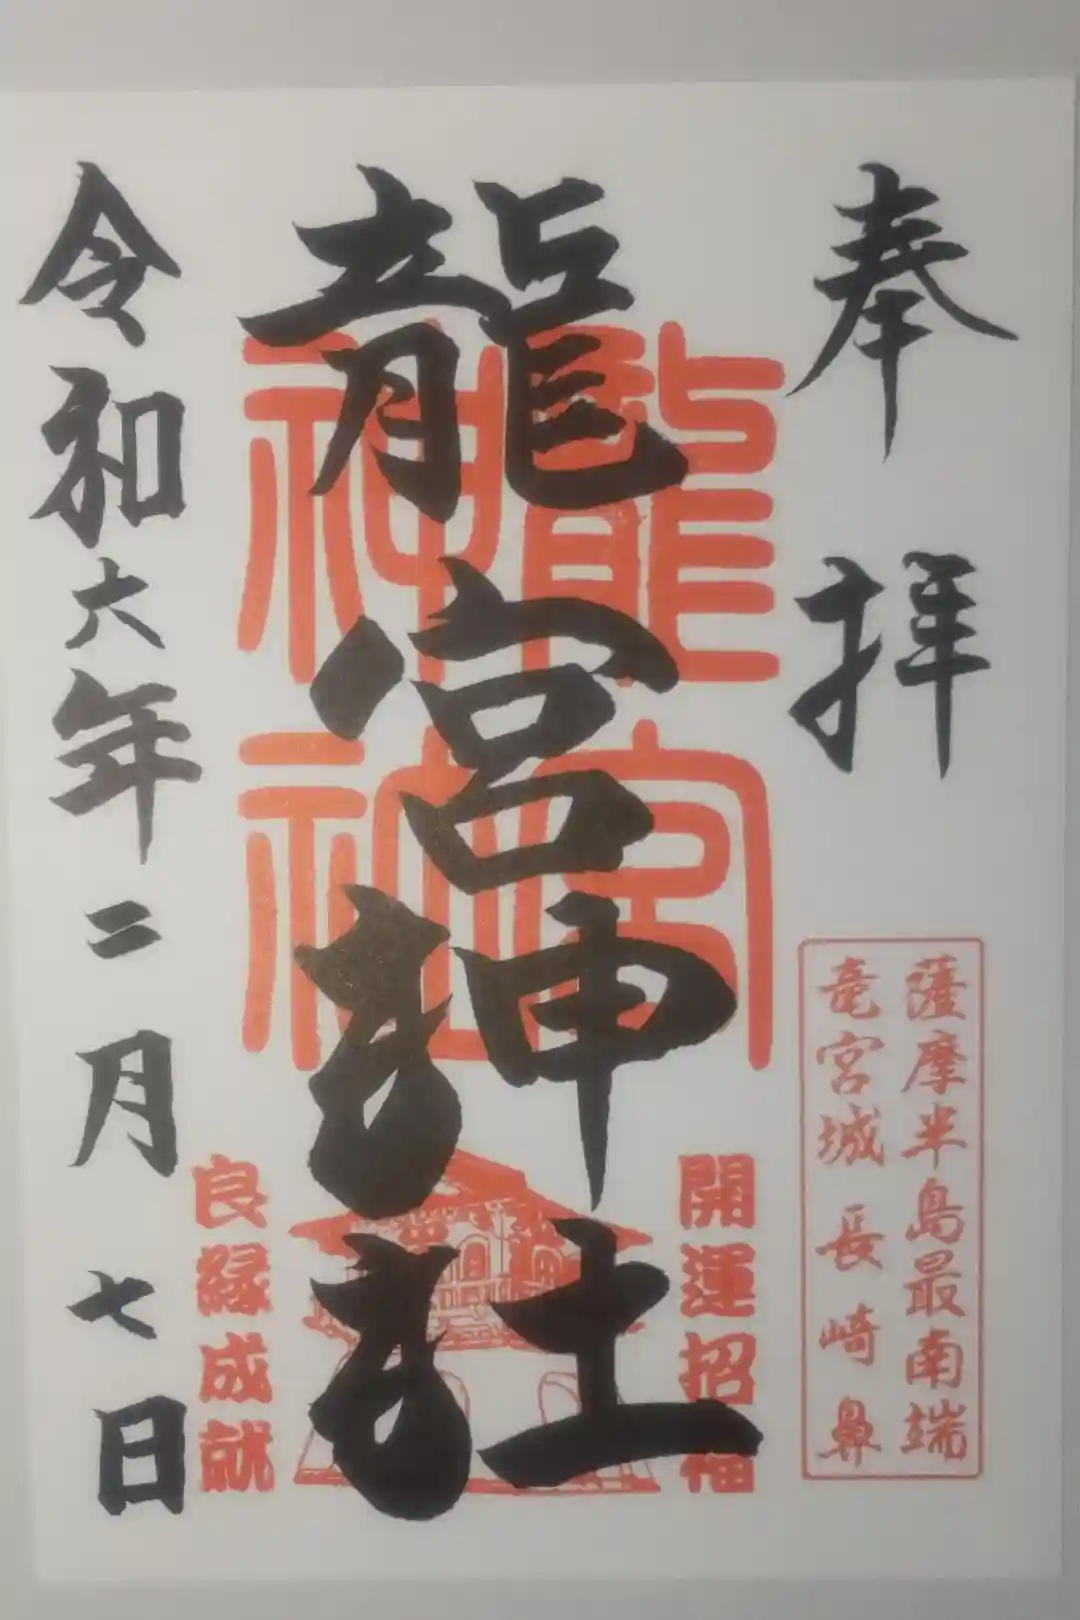 奉拝
薩摩半島最南端
竜宮城 長崎鼻
龍宮神社
龍宮
神社
開運招福
良縁成就
令和六年二月七日